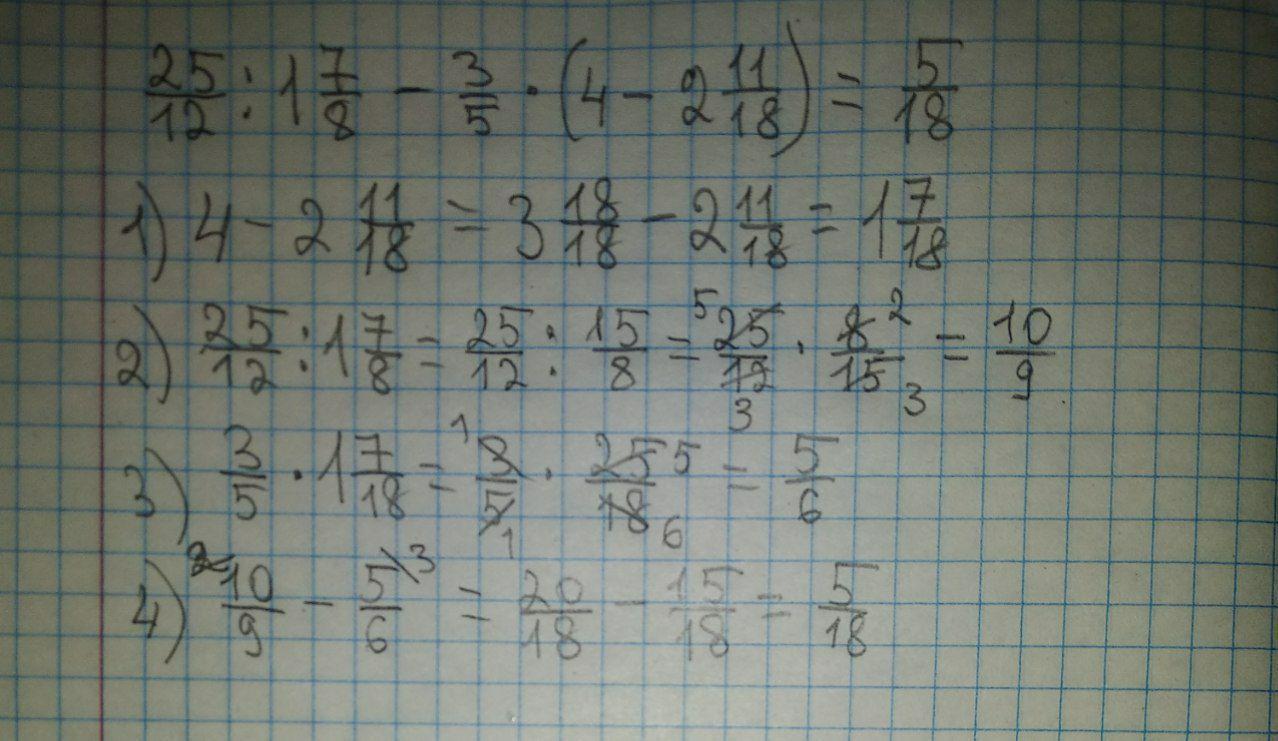 25/12 : 1 7/8 − 3/5 · (4 − 2 11/18) = 5/18
1) 4 − 2 11/18 = 3 18/18 − 2 11/18 = 1 7/18
2) 25/12 : 1 7/8 = 25/12 : 15/8 = 5 25/12 3 · 8 2/15 3 = 10/9
3) 3/5 · 1 7/18 = 1 3/5 1 · 25 5/18 6 = 5/6
4) 2\ 10/9 − 5\3/6 = 20/18 − 15/18 = 5/18